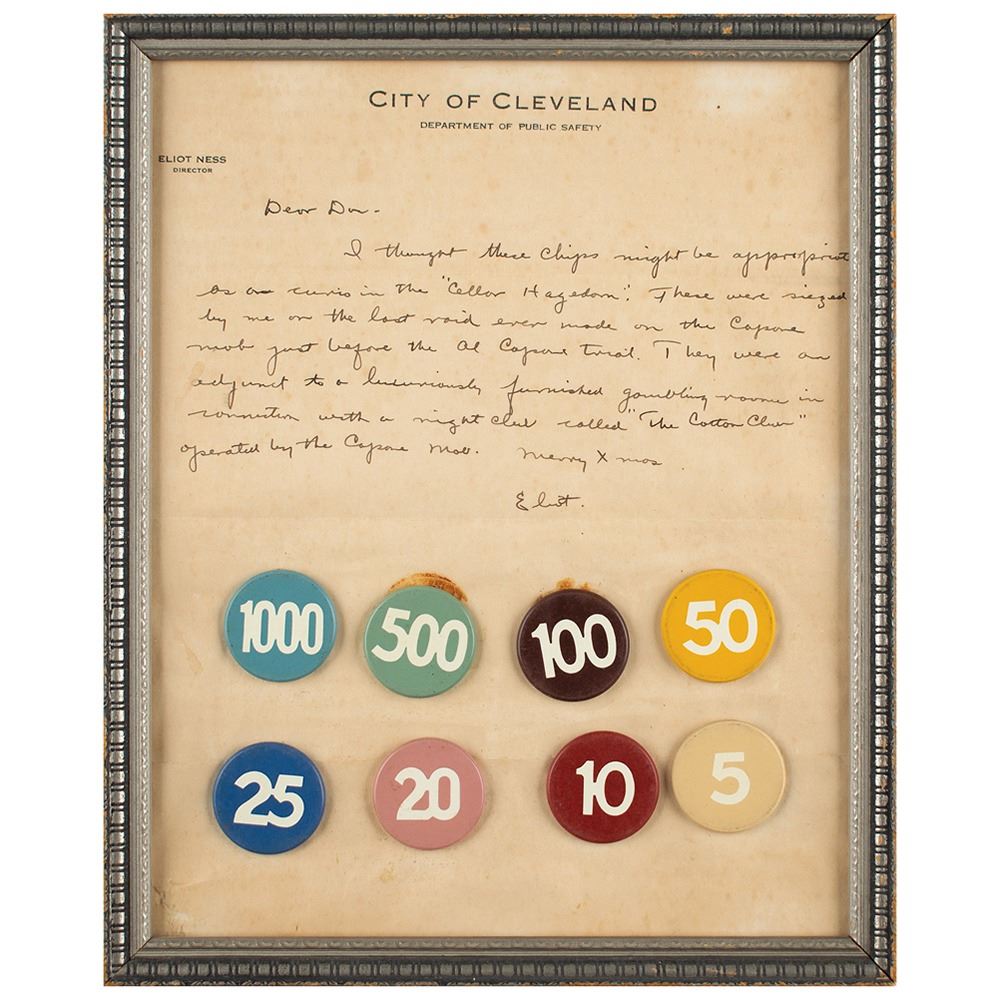 CITY OF CLEVELAND
DEPARTMENT OF PUBLIC SAFETY
ELIOT NESS
DIRECTOR
Dear Dan -
I thought these chips might be appropriate
as a curio in the "Cellar Hagedorn". These were siezed
by me on the last raid ever made on the Capone
mob just before the Al Capone trial. They were an
adjunct to a luxuriously furnished gambling room in
connection with a night club called "The Cotton Club"
operated by the Capone Mob. Merry Xmas
Eliot.
1000 500 100 50
25 20 10 5